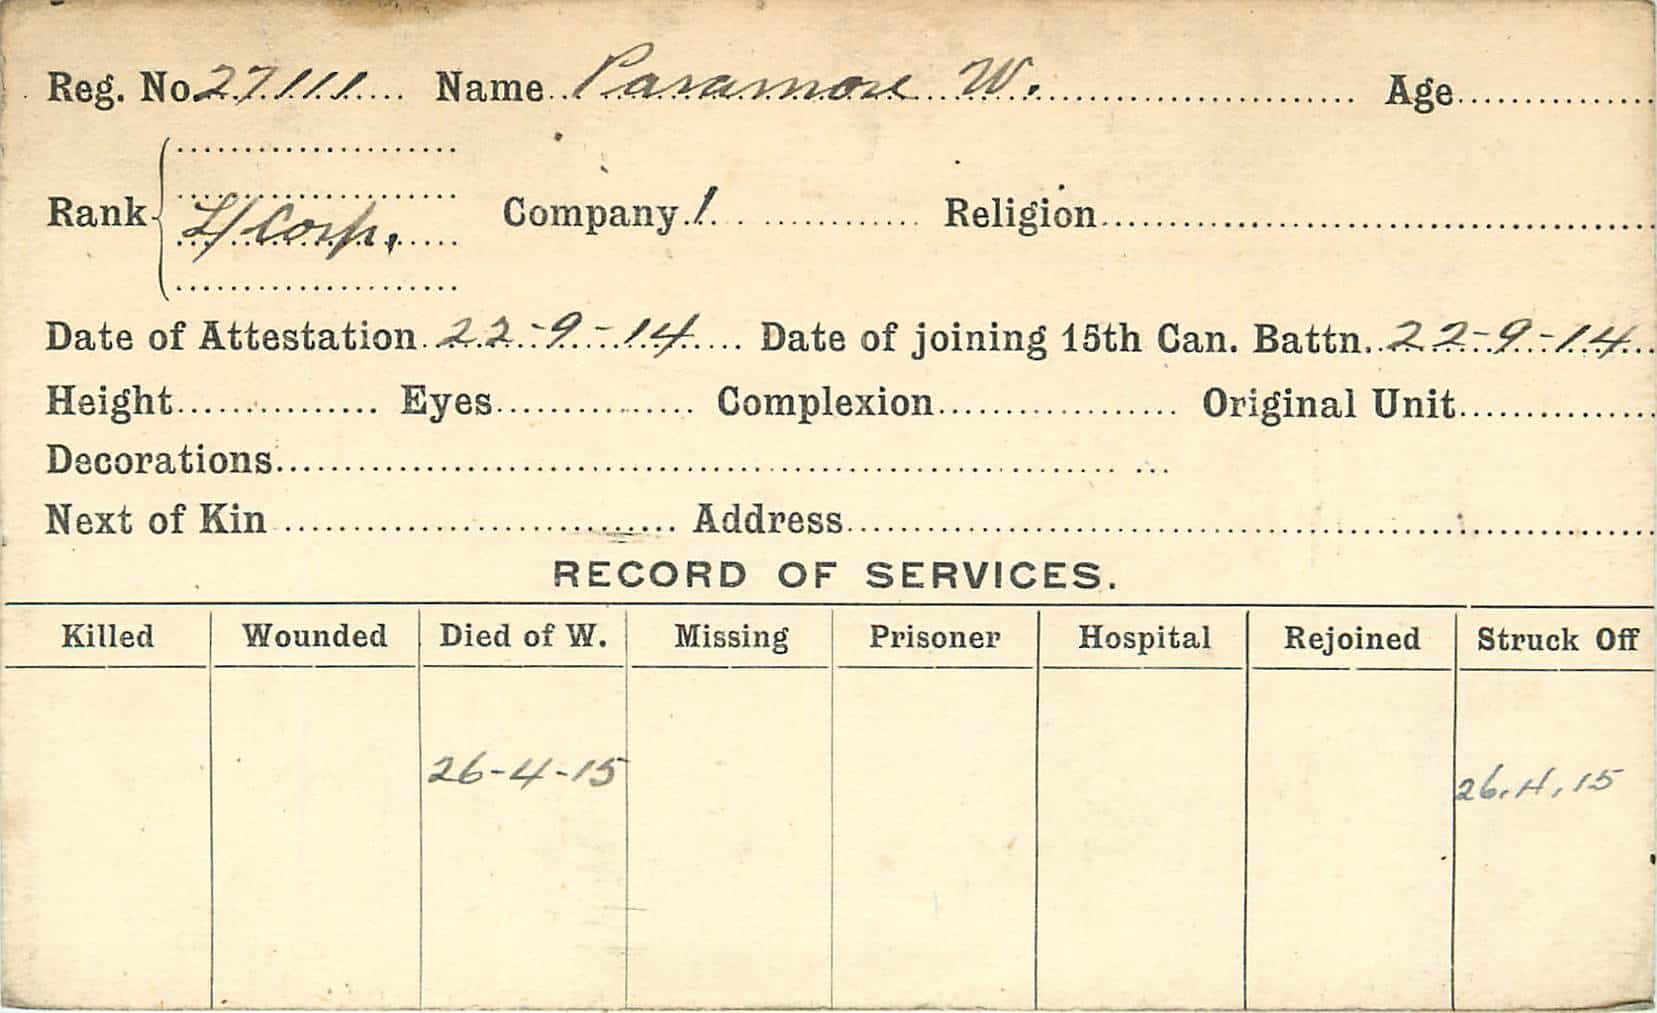 Reg. No. 27111 Name Paramore W. Age
Rank L/Corp. Company 1 Religion
Date of Attestation 22-9-14 Date of joining 15th Can. Battn. 22-9-14
Height Eyes Complexion Original Unit
Decorations
Next of Kin Address
RECORD OF SERVICES.
Killed Wounded Died of W. Missing Prisoner Hospital Rejoined Struck Off
26-4-15 26.4.15